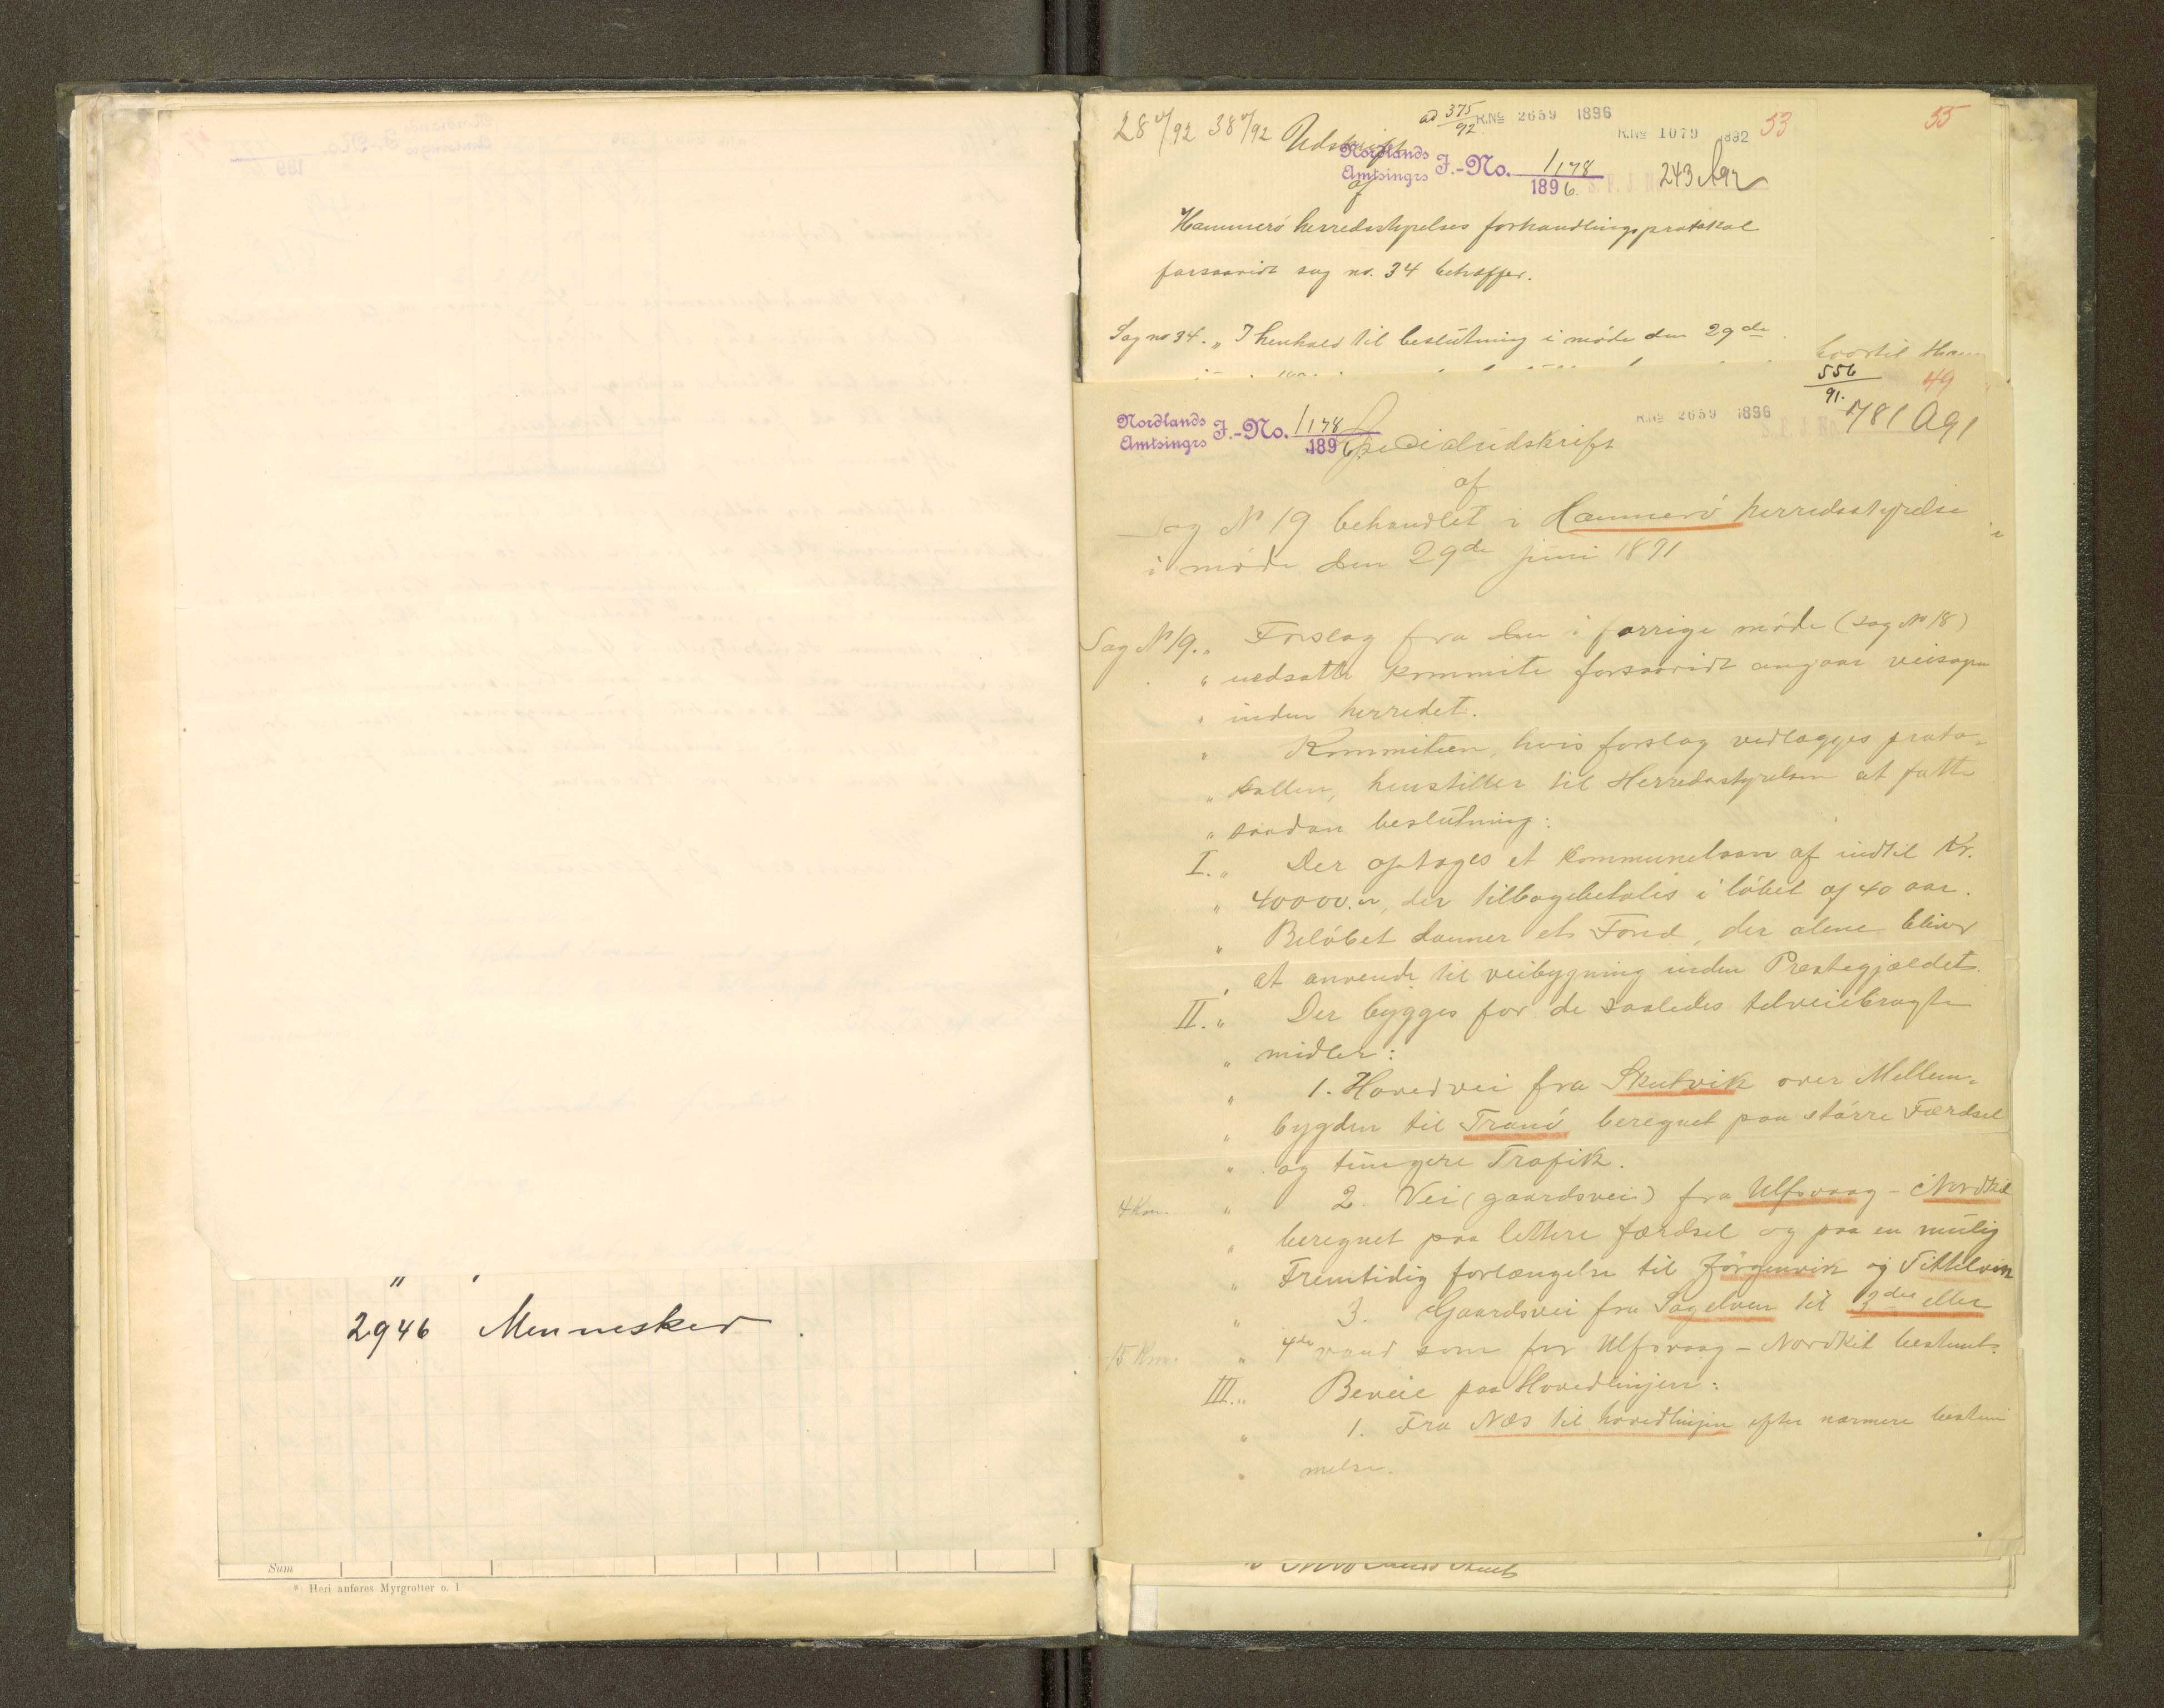 2946 Mennesker.
Sum
* Heri anføres Myrgrøfter o. l.
28 5/92 38 5/92 Udskrift
ad 375/92 R.No 2659 1896
R.No 1079 1892 53 55
Nordlands Amtsingrs J.-No. 1178 1896. 243 A92
af
Hammerø herredsstyrelses forhandlingsprotokol
forsaavidt sag no. 34 betræffer.
Sag no 34. „ I henhold til beslutning i møde den 29de
hvortil Ham
556/91. 49
Nordlands Amtsingrs J.-No. 1178 1896. R.No 2659 1896 S. F. J. No 781 A91
Specialudskrift
af
Sag No 19 behandlet i Hammerø herredsstyrelse
i møde den 29de juni 1891
Sag No 19. „ Forslag fra den i forrige møde (sag No 18)
„ nedsatte kommite forsaavidt angaar veisagen
„ inden herredet.
„ Kommiteen, hvis forslag vedlægges proto-
„ kollen, henstiller til Herredsstyrelsen at fatte
„ saadan beslutning:
I. „ Der optages et kommunelaan af indtil Kr.
„ 40000.00, der tilbagebetales i løbet af 40 aar.
„ Beløbet danner et Fond, der alene bliver
„ at anvende til veibygning inden Prestegjældet.
II. „ Der bygges for de saaledes tilveiebragte
„ midler:
„ 1. Hovedvei fra Skutvik over Mellem-
„ bygden til Tranø beregnet paa større Færdsel
„ og tungere Trafik.
4 Km. „ 2. Vei (gaardsvei) fra Ulfsvaag - Nordkil
„ beregnet paa lettere færdsel og paa en mulig
„ Fremtidig forlængelse til Jørgenvik og Tittelvik
„ 3. Gaardsvei fra Sagelven til 3die eller
15 Km. „ 4de vand som for Ulfsvaag - Nordkil bestemt.
III. „ Beveie paa Hovedlinjen:
„ 1. Fra Næs til hovedlinjen efter nærmere bestem
„ melse.